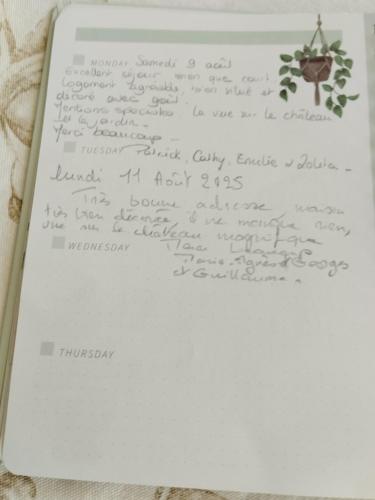 MONDAY Samedi 9 août
Excellent séjour bien que court
logement agréable, bien situé et
décoré avec goût.
Mentions spéciales la vue sur le château
et le jardin.
Merci beaucoup
TUESDAY Patrick, Cathy, Emilie et
lundi 11 Août 2025
Très bonne adresse, maison
très bien décorée, il ne manque rien,
vue sur le château magnifique
WEDNESDAY
Marie-Agnès Georges
et Guillaume.
THURSDAY